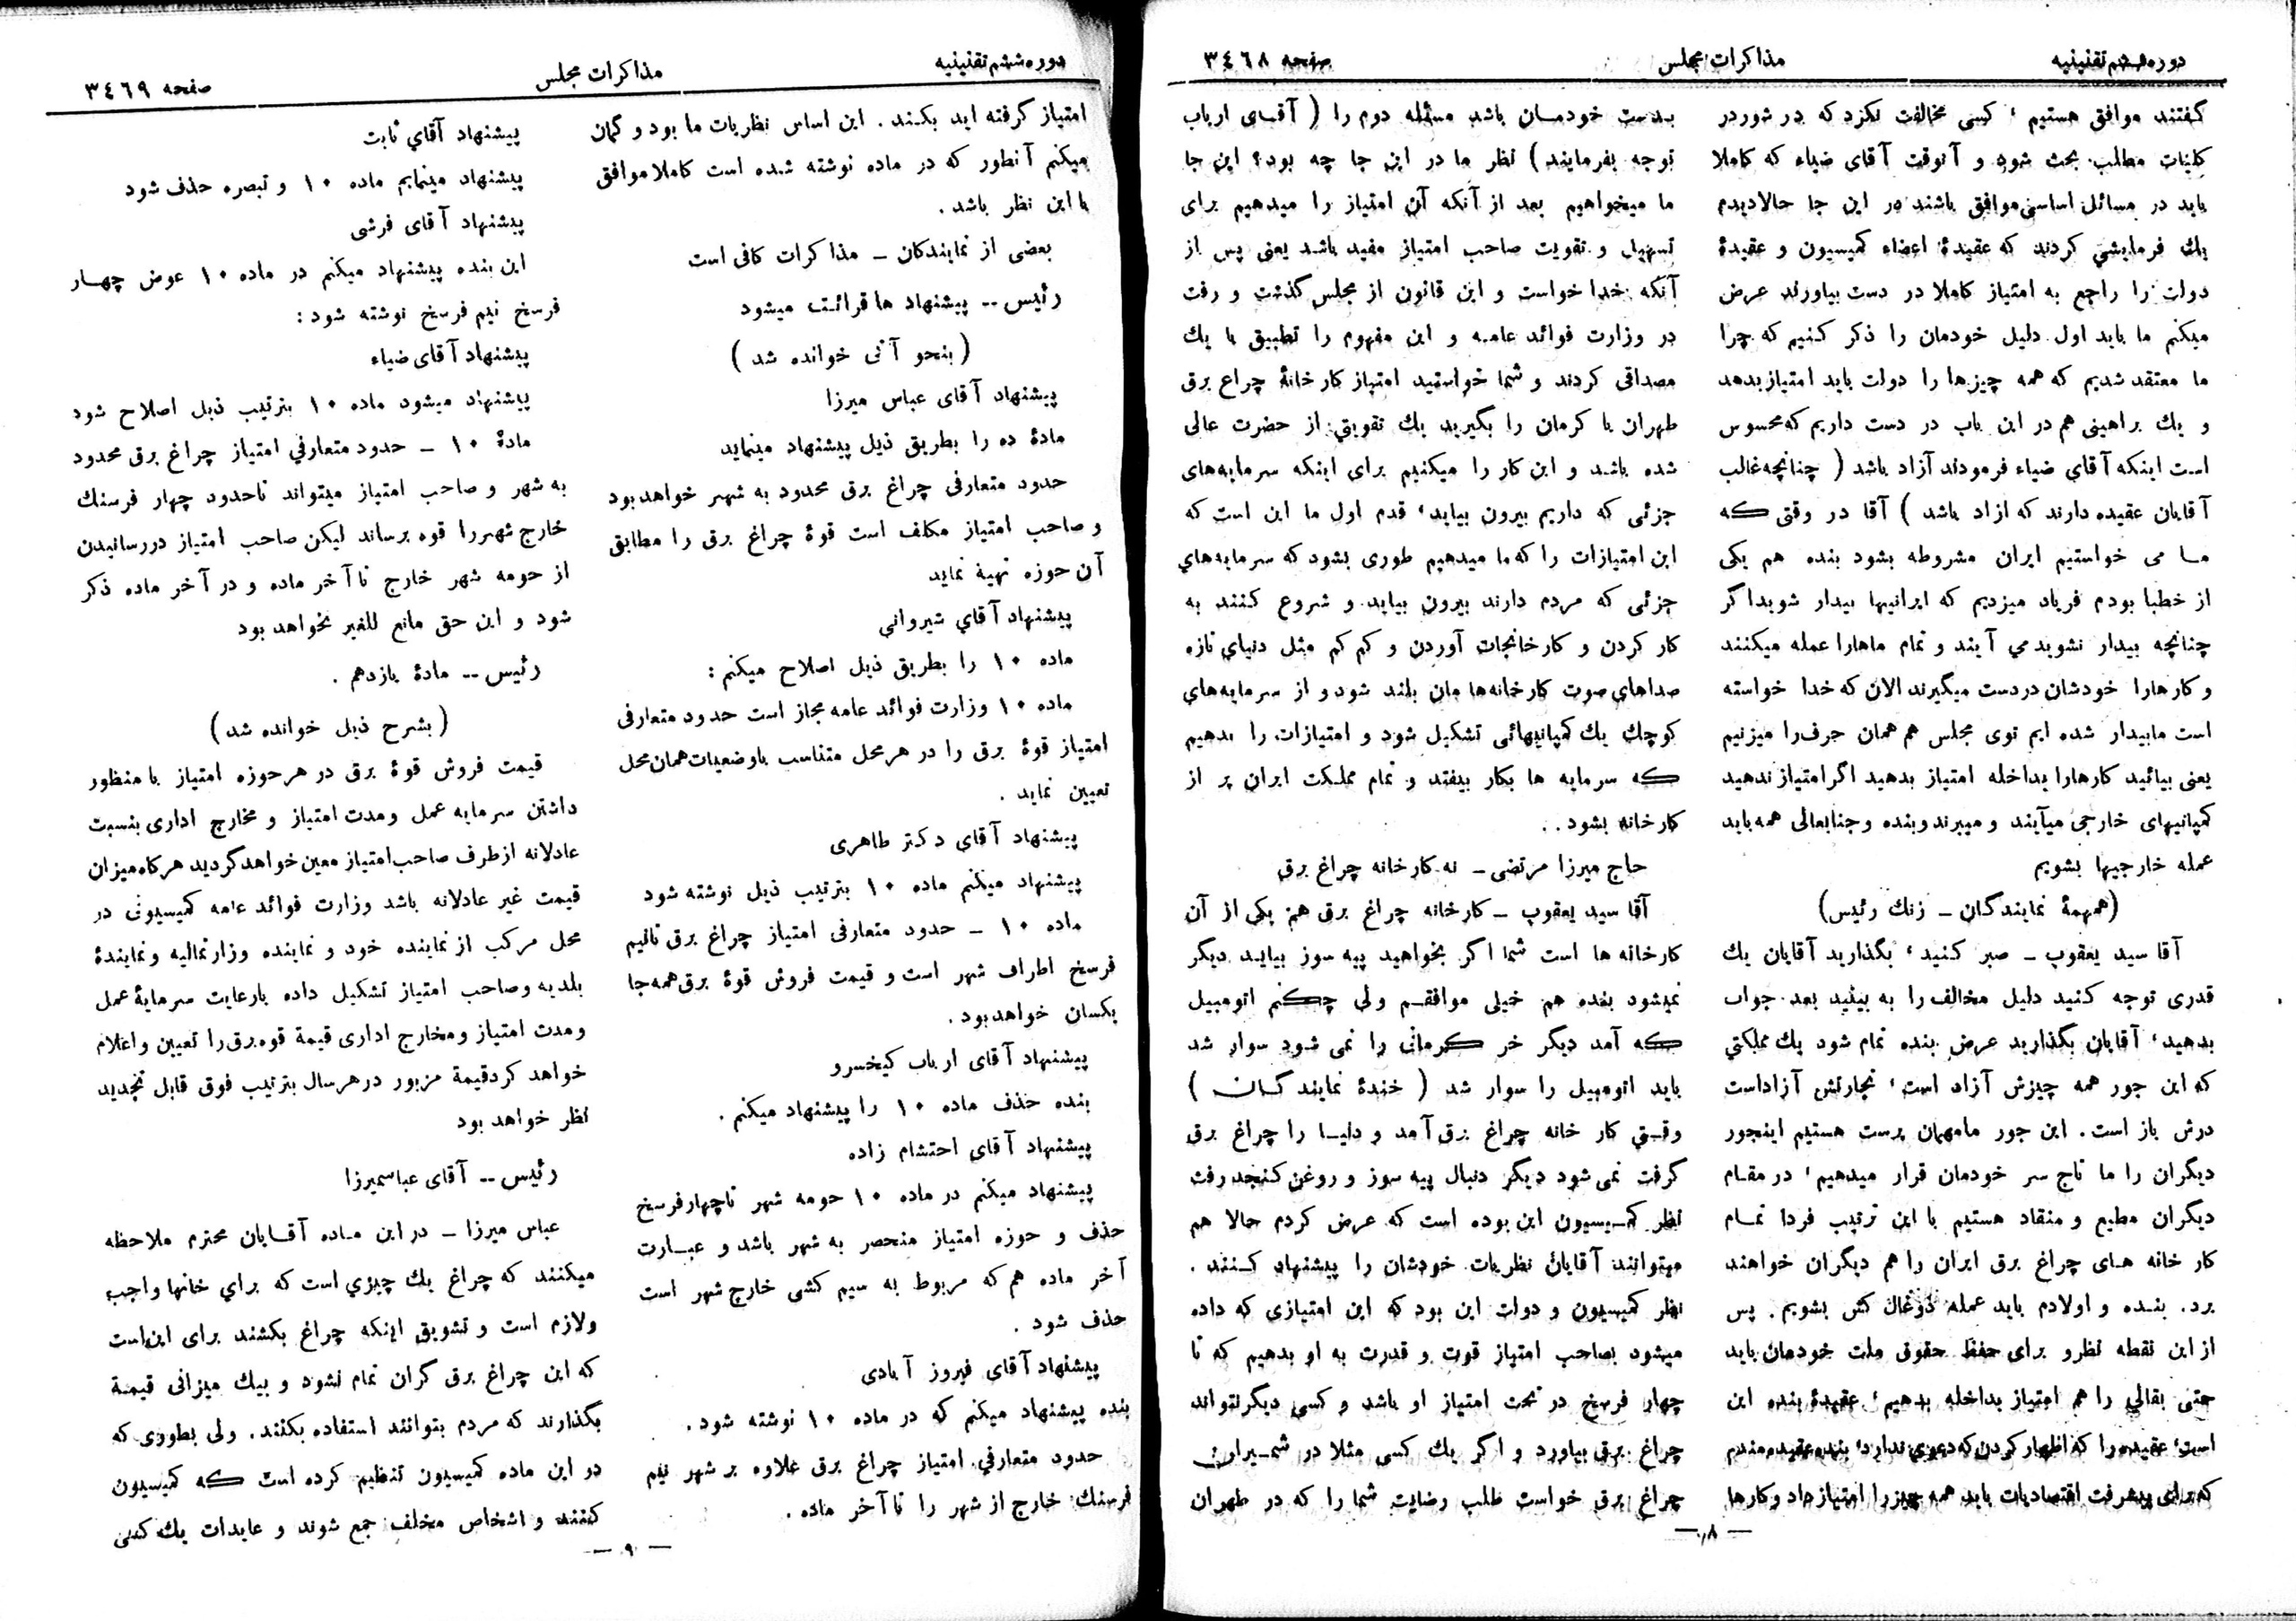 دوره ششم تقنینیه
مذاکرات مجلس
صفحه ۳٤٦۸
گفتند موافق هستیم ، کسی مخالفت نکرد که در شور در
کلیات مطلب بحث شود و آنوقت آقای ضیاء که کاملا
باید در مسائل اساسی موافق باشند در این جا حالا دیدم
یك فرمایشی کردند که عقیدهٔ اعضاء کمیسیون و عقیدهٔ
دولت را راجع به امتیاز کاملا در دست بیاورند عرض
میکنم ما باید اول دلیل خودمان را ذکر کنیم که چرا
ما معتقد شدیم که همه چیزها را دولت باید امتیاز بدهد
و یك براهینی هم در این باب در دست داریم که محسوس
است اینکه آقای ضیاء فرمودند آزاد باشد ( چنانچه غالب
آقایان عقیده دارند که ازاد باشد ) آقا در وقتی که
ما می خواستیم ایران مشروطه بشود بنده هم یکی
از خطبا بودم فریاد میزدیم که ایرانیها بیدار شوید اگر
چنانچه بیدار نشوید می آیند و تمام ماهارا عمله میکنند
و کارهارا خودشان در دست میگیرند الان که خدا خواسته
است ما بیدار شده ایم توی مجلس هم همان حرف را میزنیم
یعنی بیائید کارهارا بداخله امتیاز بدهید اگر امتیاز ندهید
کمپانیهای خارجی میآیند و میبرند و بنده و جنابعالی همه باید
عمله خارجیها بشویم
(همهمهٔ نمایندگان ــ زنك رئیس)
آقا سید یعقوب ــ صبر کنید ، بگذارید آقایان یك
قدری توجه کنید دلیل مخالف را به بینید بعد جواب
بدهید ، آقایان بگذارید عرض بنده تمام شود یك مملکتی
که این جور همه چیزش آزاد است ، تجارتش آزاد است
درش باز است . این جور ما مهمان پرست هستیم اینجور
دیگران را ما تاج سر خودمان قرار میدهیم ، در مقام
دیگران مطیع و منقاد هستیم با این ترتیب فردا تمام
کار خانه های چراغ برق ایران را هم دیگران خواهند
برد . بنده و اولادم باید عمله ذوغال کش بشویم . پس
از این نقطه نظر و برای حفظ حقوق ملت خودمان باید
حتی بقالی را هم امتیاز بداخله بدهیم ، عقیدهٔ بنده این
است ، عقیده را که اظهار کردن که دعوی ندارد ، بنده عقیده مندم
که برای پیشرفت اقتصادیات باید همه چیز را امتیاز داد و کارها
بدست خودمان باشد مسئله دوم را ( آقای ارباب
توجه بفرمایند ) نظر ما در این جا چه بود؟ این جا
ما میخواهیم بعد از آنکه آن امتیاز را میدهیم برای
تسهیل و تقویت صاحب امتیاز مفید باشد یعنی پس از
آنکه خدا خواست و این قانون از مجلس گذشت و رفت
در وزارت فوائد عامه و این مفهوم را تطبیق با یك
مصداقی کردند و شما خواستید امتیاز کار خانهٔ چراغ برق
طهران یا کرمان را بگیرید یك تقویتی از حضرت عالی
شده باشد و این کار را میکنیم برای اینکه سرمایه های
جزئی که داریم بیرون بیاید ، قدم اول ما این است که
این امتیازات را که ما میدهیم طوری بشود که سرمایه های
جزئی که مردم دارند بیرون بیاید و شروع کنند به
کار کردن و کار خانجات آوردن و کم کم مثل دنیای تازه
صداهای صوت کارخانه ها مان بلند شود و از سرمایه های
کوچك یك کمپانیهائی تشکیل شود و امتیازات را بدهیم
که سرمایه ها بکار بیفتد و تمام مملکت ایران پر از
کارخانه بشود . .
حاج میرزا مرتضی ــ نه کارخانه چراغ برق
آقا سید یعقوب ــ کارخانه چراغ برق هم یکی از آن
کارخانه ها است شما اگر بخواهید پیه سوز بیاید دیگر
نمیشود بنده هم خیلی موافقم ولی چکنم اتومبیل
که آمد دیگر خر کرمانی را نمی شود سوار شد
باید اتومبیل را سوار شد ( خندهٔ نمایندگان )
وقتی کار خانه چراغ برق آمد و دنیا را چراغ برق
گرفت نمی شود دیگر دنبال پیه سوز و روغن کنجد رفت
نظر کمیسیون این بوده است که عرض کردم حالا هم
میتوانند آقایان نظریات خودشان را پیشنهاد کنند .
نظر کمیسیون و دولت این بود که این امتیازی که داده
میشود بصاحب امتیاز قوت و قدرت به او بدهیم که تا
چهار فرسخ در تحت امتیاز او باشد و کسی دیگر نتواند
چراغ برق بیاورد و اگر یك کسی مثلا در شمیران
چراغ برق خواست طلب رضایت شما را که در طهران
— ۸ —
دوره ششم تقنینیه
مذاکرات مجلس
صفحه ۳٤٦۹
امتیاز گرفته اید بکند . این اساس نظریات ما بود و گمان
میکنم آنطور که در ماده نوشته شده است کاملا موافق
با این نظر باشد .
بعضی از نمایندکان ــ مذاکرات کافی است
رئیس -- پیشنهاد ها قرائت میشود
( بنحو آتی خوانده شد )
پیشنهاد آقای عباس میرزا
مادهٔ ده را بطریق ذیل پیشنهاد مینماید
حدود متعارفی چراغ برق محدود به شهر خواهد بود
و صاحب امتیاز مکلف است قوهٔ چراغ برق را مطابق
آن حوزه تهیهٔ نماید
پیشنهاد آقای شیروانی
ماده ۱۰ را بطریق ذیل اصلاح میکنم :
ماده ۱۰ وزارت فوائد عامه مجاز است حدود متعارفی
امتیاز قوهٔ برق را در هر محل متناسب با وضعیات همان محل
تعیین نماید .
پیشنهاد آقای دکتر طاهری
پیشنهاد میکنم ماده ۱۰ بترتیب ذیل نوشته شود
ماده ۱۰ ــ حدود متعارفی امتیاز چراغ برق تانیم
فرسخ اطراف شهر است و قیمت فروش قوهٔ برق همه جا
یکسان خواهد بود .
پیشنهاد آقای ارباب کیخسرو
بنده حذف ماده ۱۰ را پیشنهاد میکنم .
پیشنهاد آقای احتشام زاده
پیشنهاد میکنم در ماده ۱۰ حومه شهر تا چهار فرسخ
حذف و حوزه امتیاز منحصر به شهر باشد و عبارت
آخر ماده هم که مربوط به سیم کشی خارج شهر است
حذف شود .
پیشنهاد آقای فیروز آبادی
بنده پیشنهاد میکنم که در ماده ۱۰ نوشته شود .
حدود متعارفی امتیاز چراغ برق علاوه بر شهر نیم
فرسنك خارج از شهر را تا آخر ماده .
پیشنهاد آقای ثابت
پیشنهاد مینمایم ماده ۱۰ و تبصره حذف شود
پیشنهاد آقای فرشی
این بنده پیشنهاد میکنم در ماده ۱۰ عوض چهار
فرسخ نیم فرسخ نوشته شود :
پیشنهاد آقای ضیاء
پیشنهاد میشود ماده ۱۰ بترتیب ذیل اصلاح شود
مادهٔ ۱۰ ــ حدود متعارفی امتیاز چراغ برق محدود
به شهر و صاحب امتیاز میتواند تا حدود چهار فرسنك
خارج شهر را قوه برساند لیکن صاحب امتیاز در رسانیدن
از حومه شهر خارج تا آخر ماده و در آخر ماده ذکر
شود و این حق مانع للغیر نخواهد بود
رئیس -- مادهٔ یازدهم .
( بشرح ذیل خوانده شد )
قیمت فروش قوهٔ برق در هر حوزه امتیاز با منظور
داشتن سرمایه عمل و مدت امتیاز و مخارج اداری بنسبت
عادلانه از طرف صاحب امتیاز معین خواهد گردید هر کاه میزان
قیمت غیر عادلانه باشد وزارت فوائد عامه کمیسیونی در
محل مرکب از نماینده خود و نماینده وزارتمالیه و نمایندهٔ
بلدیه و صاحب امتیاز تشکیل داده بارعایت سرمایهٔ عمل
و مدت امتیاز و مخارج اداری قیمة قوه برق را تعیین و اعلام
خواهد کرد قیمة مزبور در هر سال بترتیب فوق قابل تجدید
نظر خواهد بود
رئیس -- آقای عباسمیرزا
عباس میرزا ــ در این ماده آقایان محترم ملاحظه
میکنند که چراغ یك چیزی است که برای خانها واجب
و لازم است و تشویق اینکه چراغ بکشند برای این است
که این چراغ برق گران تمام نشود و بیك میزانی قیمة
بگذارند که مردم بتوانند استفاده بکنند . ولی بطوری که
در این ماده کمیسیون تنظیم کرده است که کمیسیون
کنند و اشخاص مخلف جمع شوند و عایدات یك کسی
— ۹ —